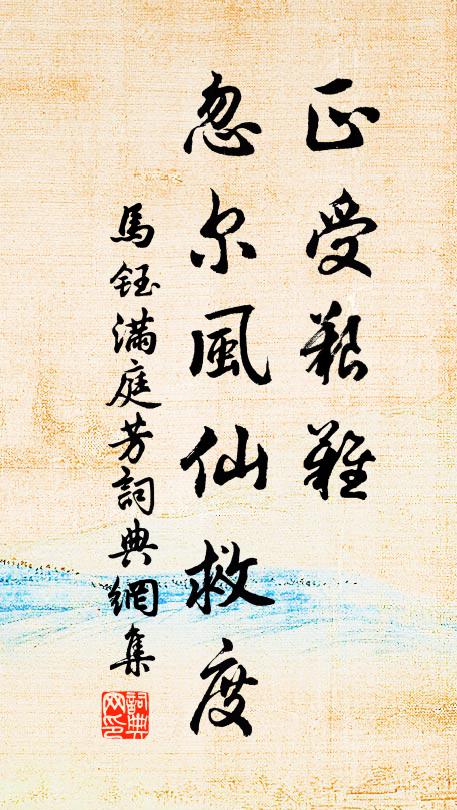 正受艱難
忽尔風仙救度
馬鈺滿庭芳詞典網集
詞典网印